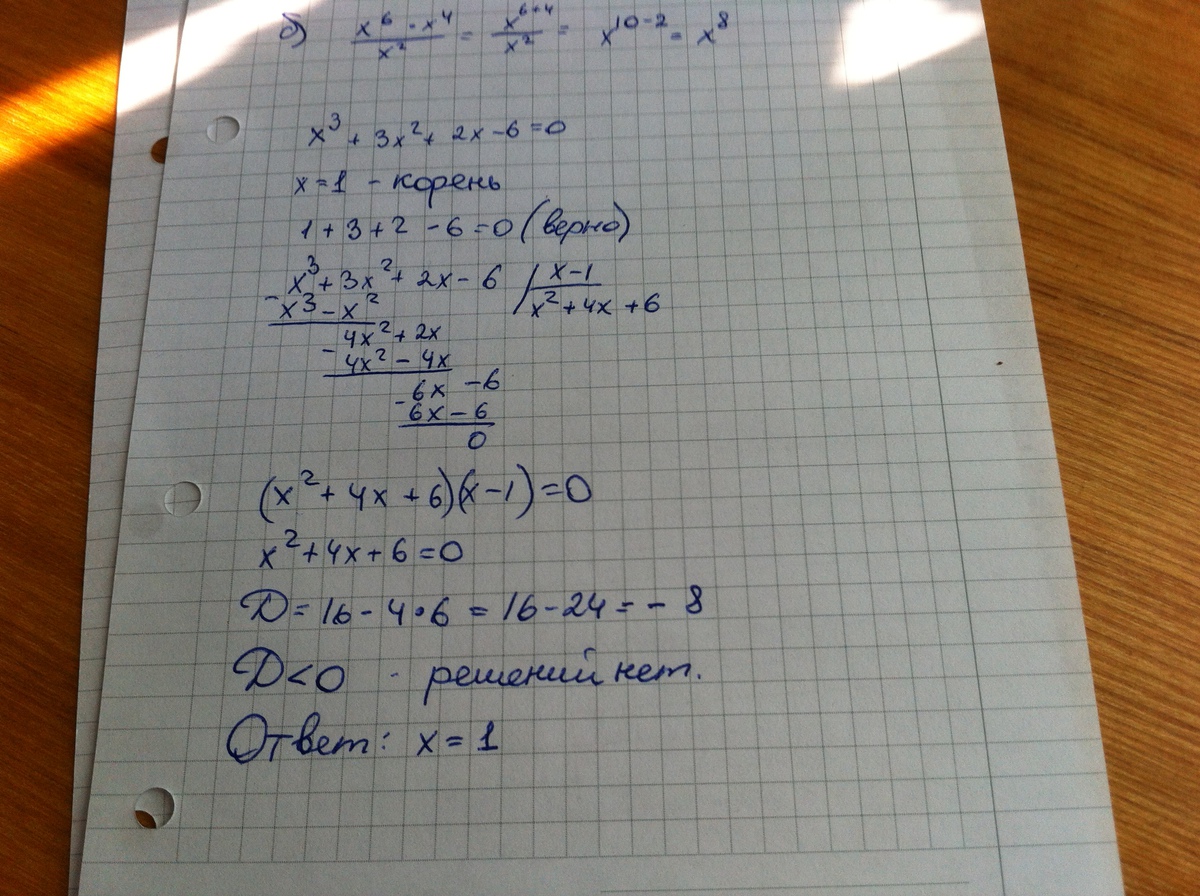 б) x⁶ · x⁴ / x² = x⁶⁺⁴ / x² = x¹⁰⁻² = x⁸
x³ + 3x² + 2x - 6 = 0
x = 1 - корень
1 + 3 + 2 - 6 = 0 (верно)
x³ + 3x² + 2x - 6 | x - 1
- x³ - x² | x² + 4x + 6
4x² + 2x
- 4x² - 4x
6x - 6
- 6x - 6
0
(x² + 4x + 6)(x - 1) = 0
x² + 4x + 6 = 0
D = 16 - 4 · 6 = 16 - 24 = - 8
D < 0 - решений нет.
Ответ: x = 1